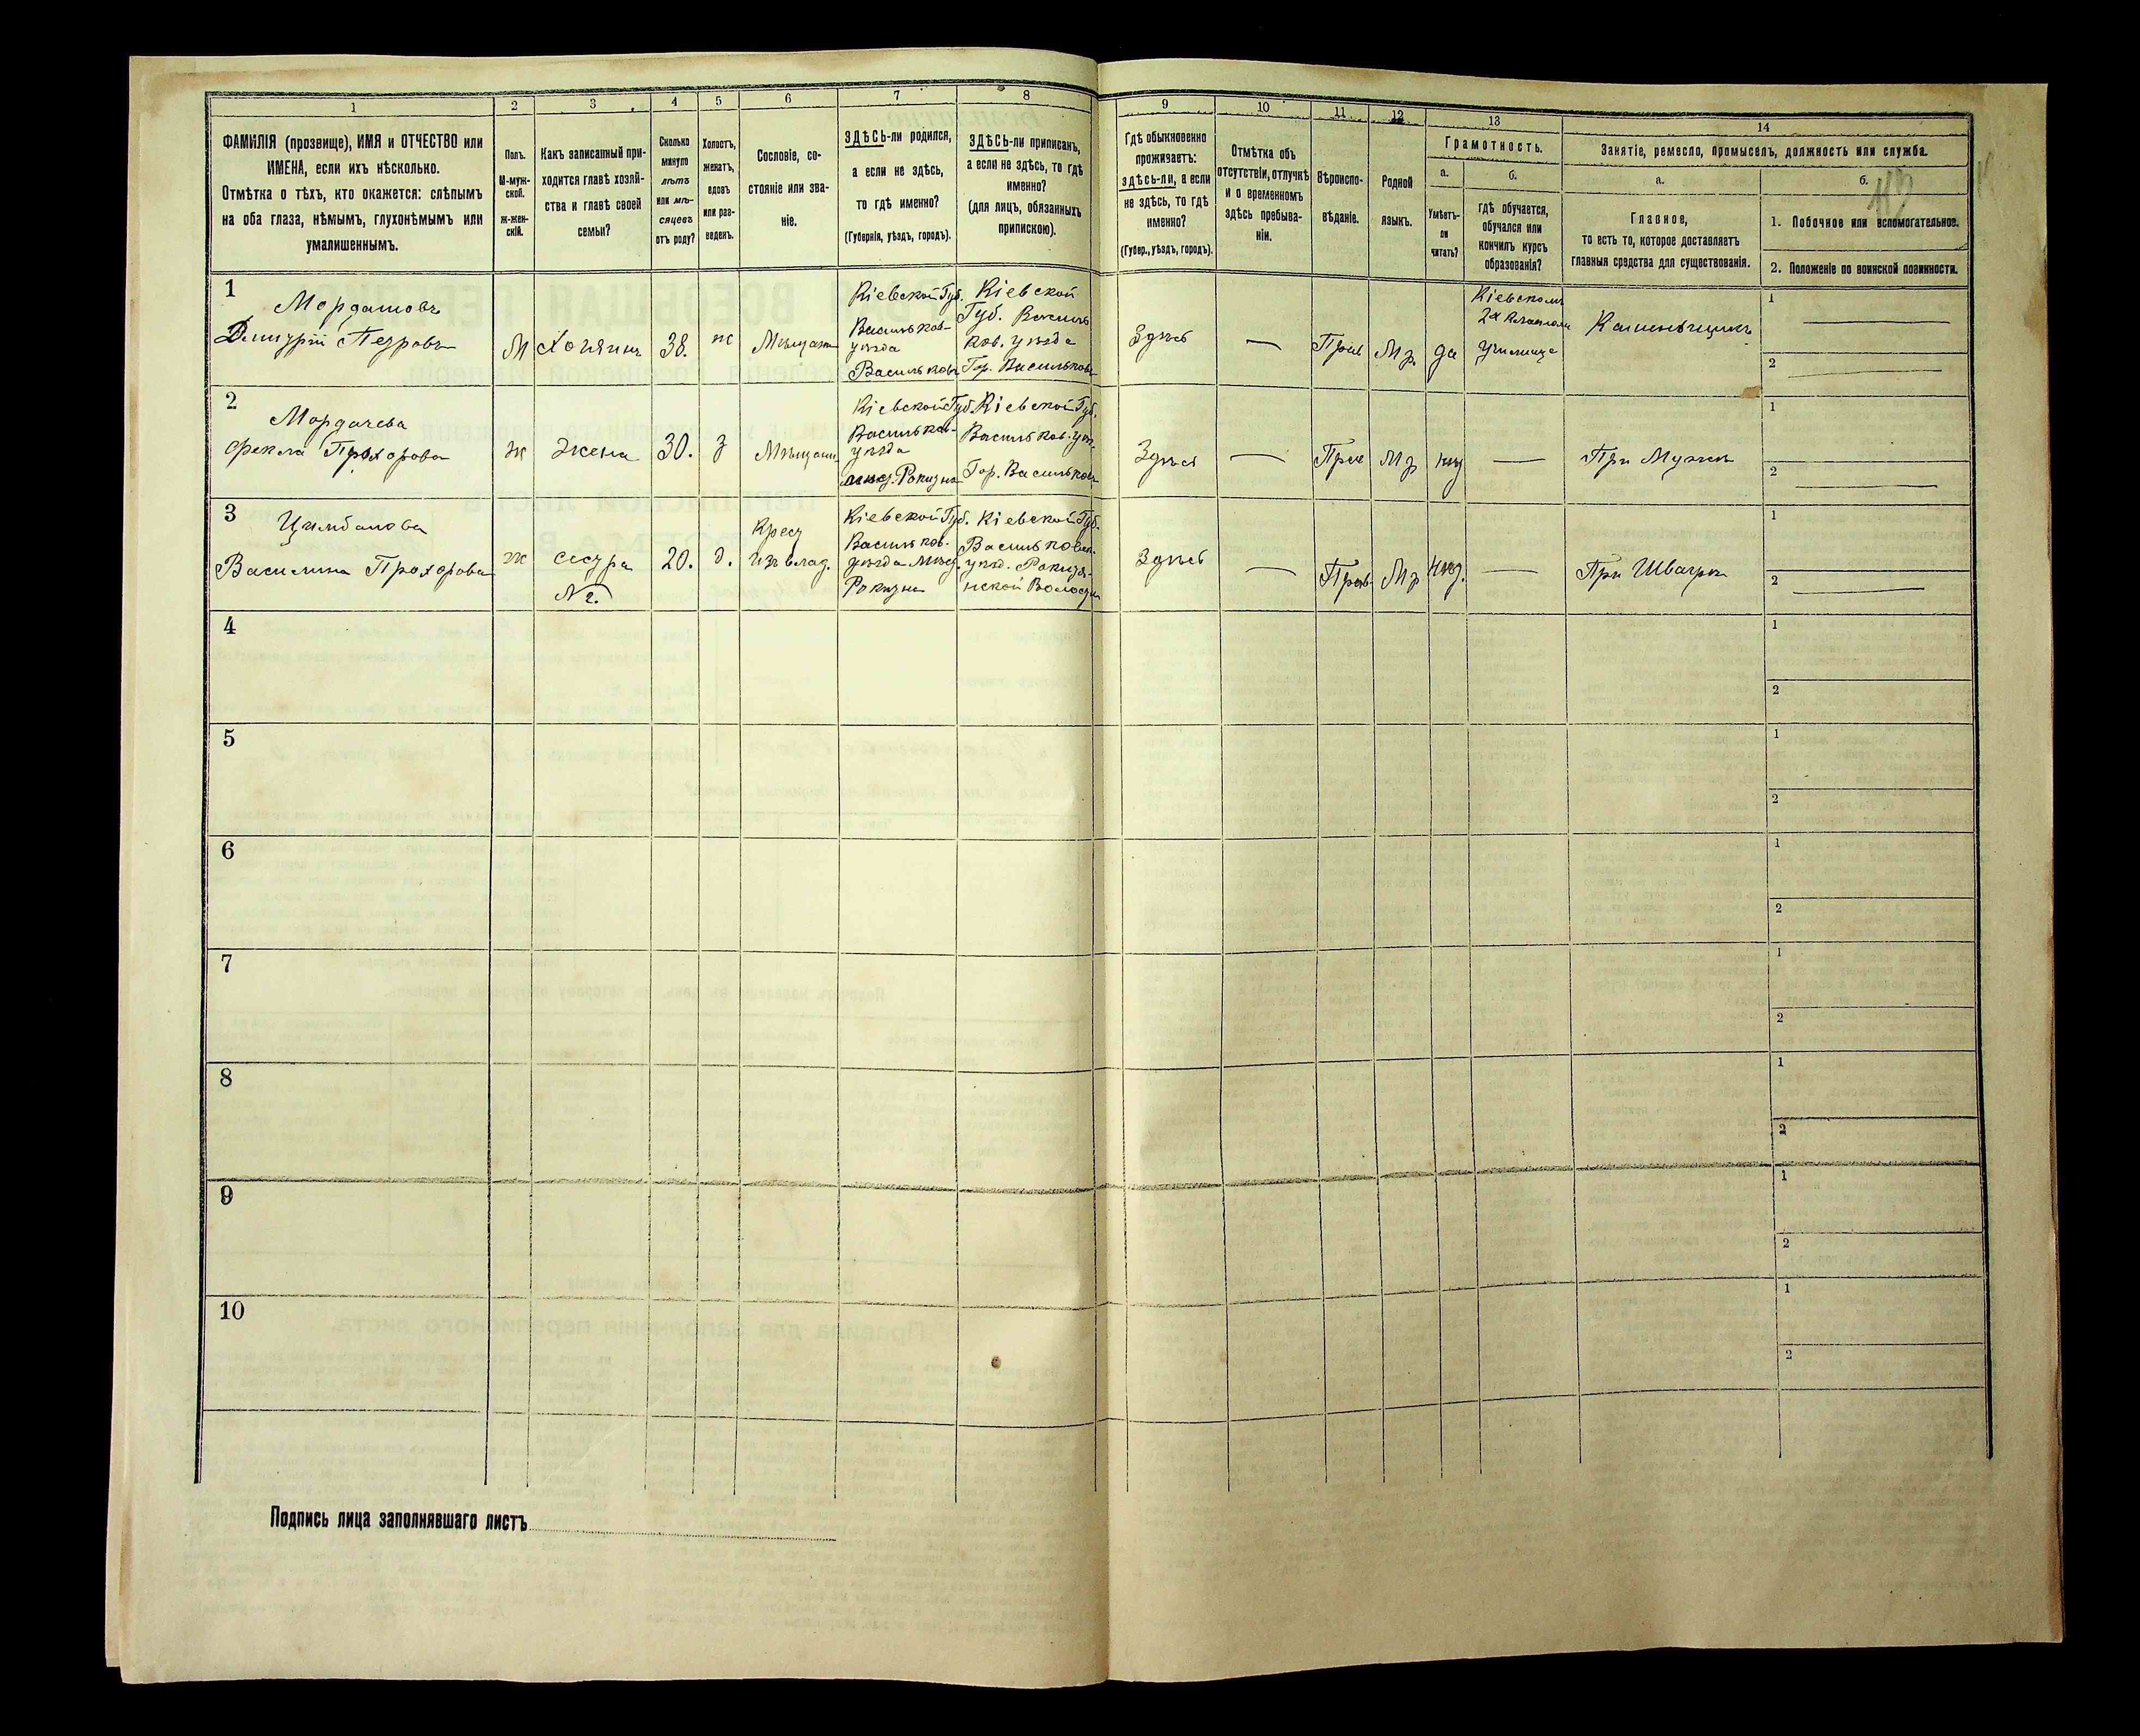 1
2
3
4
5
6
7
8
9
10
11
12
13
14
ФАМИЛІЯ (прозвище), ИМЯ и ОТЧЕСТВО или
ИМЕНА, если ихъ нѣсколько.
Отмѣтка о тѣхъ, кто окажется: слѣпымъ
на оба глаза, нѣмымъ, глухонѣмымъ или
умалишеннымъ.
Полъ.
М-муж-
ской.
ж-жен-
скій.
Какъ записанный при-
ходится главѣ хозяй-
ства и главѣ своей
семьи?
Сколько
минуло
лѣтъ
или мѣ-
сяцевъ
отъ роду?
Холостъ,
женатъ,
вдовъ
или раз-
веденъ.
Сословіе, со-
стояніе или зва-
ніе.
ЗДѢСЬ-ли родился,
а если не здѣсь,
то гдѣ именно?
(Губернія, уѣздъ, городъ).
ЗДѢСЬ-ли приписанъ,
а если не здѣсь, то гдѣ
именно?
(для лицъ, обязанныхъ
припискою).
Гдѣ обыкновенно
проживаетъ:
здѣсь-ли, а если
не здѣсь, то гдѣ
именно?
(Губер., уѣздъ, городъ).
Отмѣтка объ
отсутствіи, отлучкѣ
и о временномъ
здѣсь пребыва-
ніи.
Вѣроиспо-
вѣданіе.
Родной
языкъ.
Грамотность.
а.
Умѣетъ-
ли
читать?
б.
гдѣ обучается,
обучался или
кончилъ курсъ
образованія?
Занятіе, ремесло, промыселъ, должность или служба.
а.
Главное,
то есть то, которое доставляетъ
главныя средства для существованія.
б.
1. Побочное или вспомогательное.
2. Положеніе по воинской повинности.
1
Дмитрій Петровъ
М
Хозяинъ
38.
ж
Мѣщан
Кіевской Губ.
Васильков-
уѣзда
Васильковъ
Кіевской
Губ. Василь
ков. уѣзда
Гор. Васильковъ
Здѣсь
—
Прав
Мр.
да
Кіевском
2х класном
Училище
Каменьщикъ
1
2
2
Мордачева
Фекла Прохорова
ж
жена
30.
з
Мѣщан
Кіевской Губ.
Васильков-
уѣзда
мѣст. Рокизна
Кіевской Губ.
Васильков. уѣз.
Гор. Васильковъ
Здѣсь
—
Прав
Мр
нѣт
—
При Мужѣ
1
2
3
Цимбалова
Василина Прохорова
ж
сестра
№ 2.
20.
д.
Крест
изъ влад.
Кіевской Губ.
Васильков.
уѣзда Мѣст.
Рокизна
Кіевской Губ.
Васильковск.
уѣзд. Рокизя-
нской Волости
Здѣсь
—
Прав
Мр
нѣт.
—
При Швагрѣ
1
2
4
1
2
5
1
2
6
1
2
7
1
2
8
1
2
9
1
2
10
1
2
Подпись лица заполнявшаго листъ